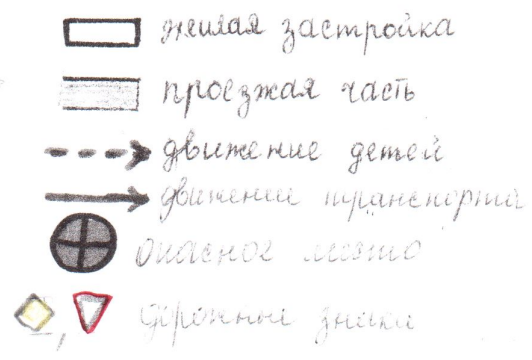 жилая застройка
проезжая часть
движение детей
движение транспорта
опасное место
дорожные знаки